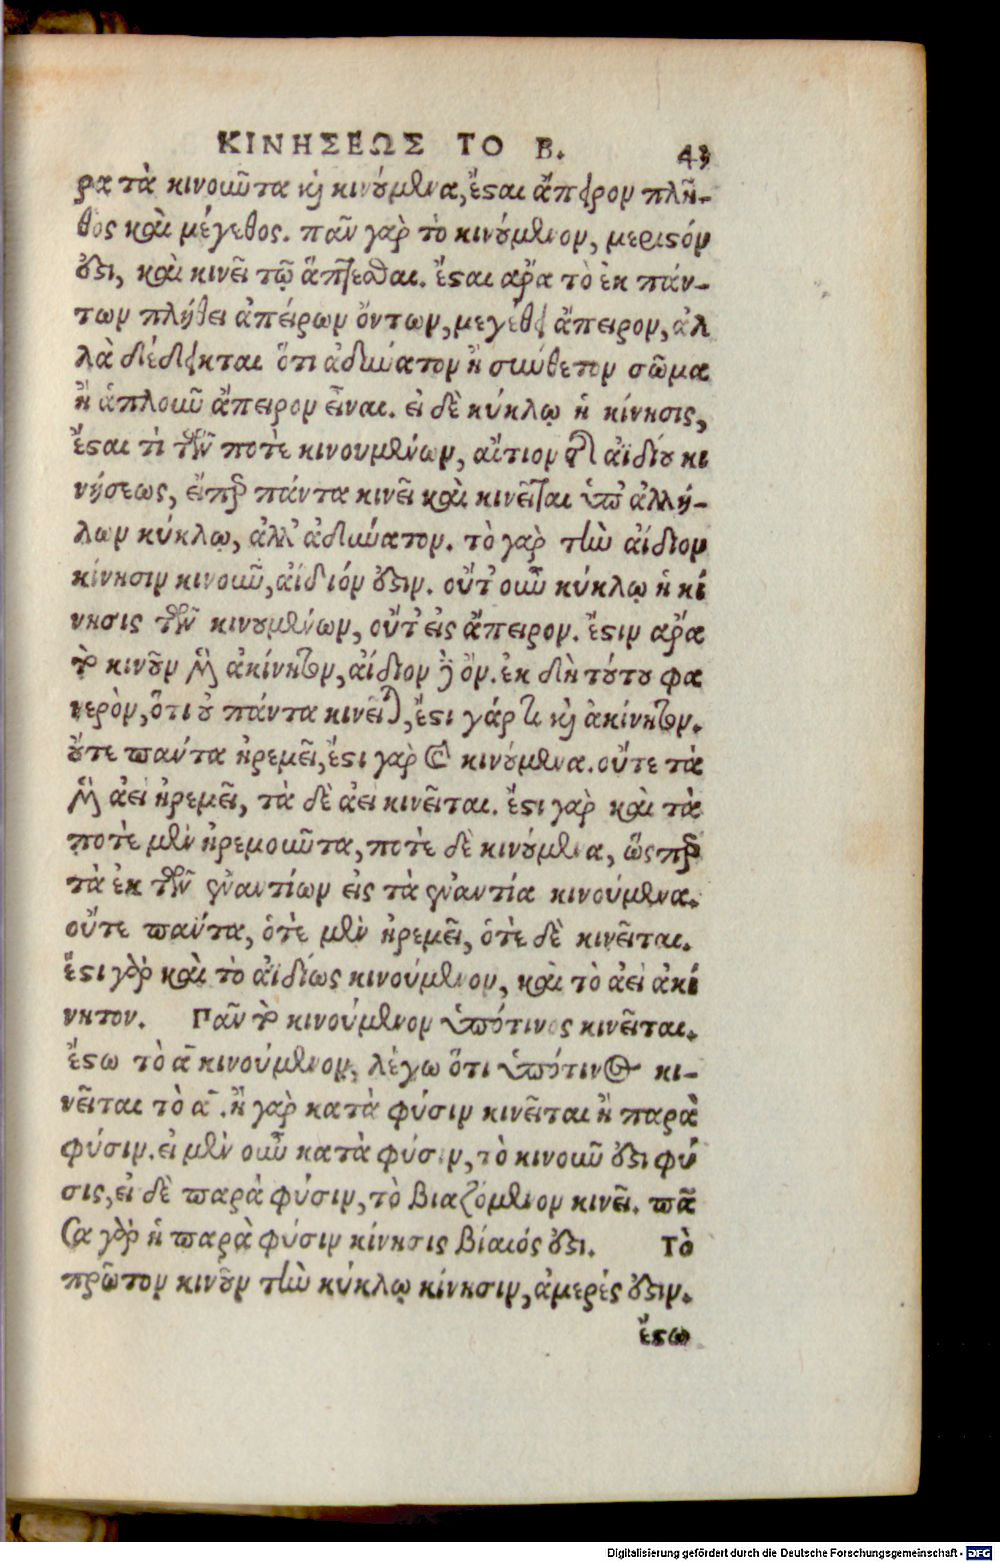 ΚΙΝΗΣΕΩΣ ΤΟ Β. 43
ρα τὰ κινοῦντα καὶ κινούμενα, ἔσται ἄπειρον πλῆ-
θος καὶ μέγεθος. πᾶν γὰρ τὸ κινούμενον, μεριστόν
ἐστι, καὶ κινεῖ τῷ ἅπτεσθαι. ἔσται ἄρα τὸ ἐκ πάν-
των πλήθει ἀπείρων ὄντων, μεγέθει ἄπειρον, ἀλ
λὰ δέδεικται ὅτι ἀδύνατον ἢ σύνθετον σῶμα
ἢ ἁπλοῦν ἄπειρον εἶναι. εἰ δὲ κύκλῳ ἡ κίνησις,
ἔσται τὶ τῶν ποτὲ κινουμένων, αἴτιον τῆς ἀϊδίου κι
νήσεως, εἴπερ πάντα κινεῖ καὶ κινεῖται ὑπ' ἀλλή-
λων κύκλῳ, ἀλλ' ἀδύνατον. τὸ γὰρ τὴν ἀΐδιον
κίνησιν κινοῦν, ἀΐδιόν ἐστιν. οὔτ' οὖν κύκλῳ ἡ κί
νησις τῶν κινουμένων, οὔτ' εἰς ἄπειρον. ἔστιν ἄρα
τὸ κινοῦν μὲν ἀκίνητον, ἀΐδιον δὲ ὄν. ἐκ δὴ τούτου φα
νερὸν, ὅτι οὐ πάντα κινεῖται, ἔστι γάρ τι καὶ ἀκίνητον.
οὔτε πάντα ἠρεμεῖ, ἔστι γὰρ καὶ κινούμενα. οὔτε τὰ
μὲν ἀεὶ ἠρεμεῖ, τὰ δὲ ἀεὶ κινεῖται. ἔστι γὰρ καὶ τὰ
ποτὲ μὲν ἠρεμοῦντα, ποτὲ δὲ κινούμενα, ὥσπερ
τὰ ἐκ τῶν ἐναντίων εἰς τὰ ἐναντία κινούμενα.
οὔτε πάντα, ὁτὲ μὲν ἠρεμεῖ, ὁτὲ δὲ κινεῖται.
ἔστι γὰρ καὶ τὸ ἀϊδίως κινούμενον, καὶ τὸ ἀεὶ ἀκί
νητον. Πᾶν τὸ κινούμενον ὑπότινος κινεῖται.
ἔστω τὸ α κινούμενον, λέγω ὅτι ὑπότινος κι-
νεῖται τὸ α. ἢ γὰρ κατὰ φύσιν κινεῖται ἢ παρὰ
φύσιν. εἰ μὲν οὖν κατὰ φύσιν, τὸ κινοῦν ἐστι φύ
σις, εἰ δὲ παρὰ φύσιν, τὸ βιαζόμενον κινεῖ. πᾶ
σα γὰρ ἡ παρὰ φύσιν κίνησις βίαιός ἐστι. Τὸ
πρῶτον κινοῦν τὴν κύκλῳ κίνησιν, ἀμερές ἐστιν.
ἔστω
Digitalisierung gefördert durch die Deutsche Forschungsgemeinschaft - DFG